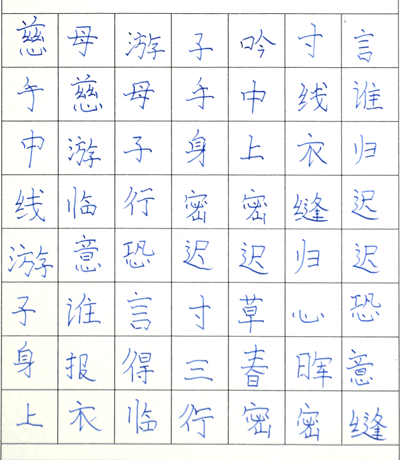 慈母游子吟寸言
手慈母手中线谁
中游子身上衣归
线临行密密缝迟
游意恐迟迟归迟
子谁言寸草心恐
身报得三春晖意
上衣临行密密缝